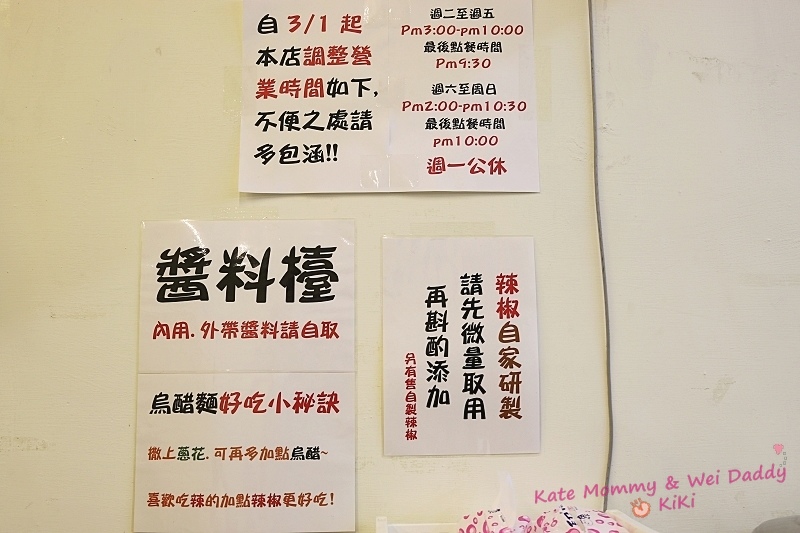 自 3/1 起
本店調整營
業時間如下,
不便之處請
多包涵!!
週二至週五
Pm3:00-pm10:00
最後點餐時間
Pm9:30
週六至週日
Pm2:00-pm10:30
最後點餐時間
pm10:00
週一公休
醬料檯
內用.外帶醬料請自取
烏醋麵好吃小秘訣
撒上蔥花.可再多加點烏醋~
喜歡吃辣的加點辣椒更好吃!
辣椒自家研製
請先微量取用
再斟酌添加
另有售自製辣椒
Kate Mommy & Wei Daddy
KiKi